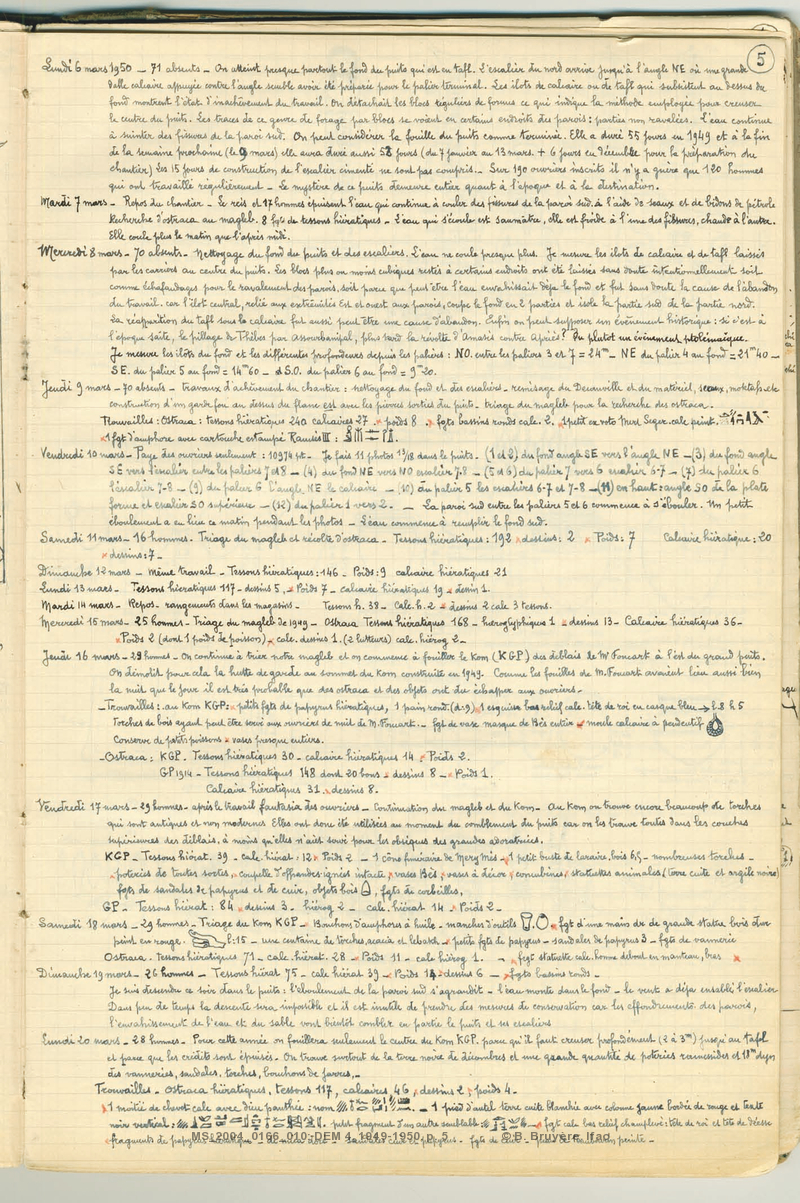 5
Lundi 6 mars 1950 _ 71 absents _ On atteint presque partout le fond du puits qui est en tafl. L'escalier du nord arrive jusqu'à l'angle NE où une grande
dalle calcaire appuyée contre l'angle semble avoir été préparée pour le palier terminal. Les ilots de calcaire ou de tafl qui subsistent au dessus du
fond montrent l'état d'inachèvement du travail. On détachait les blocs réguliers de formes ce qui indique la méthode employée pour creuser
le centre du puits. Les traces de ce genre de forage par blocs se voient en certains endroits des parois : parties non ravalées. L'eau continue
à suinter des fissures de la paroi sud. On peut considérer la fouille du puits comme terminée. Elle a duré 55 jours en 1949 et à la fin
de la semaine prochaine (le 9 mars) elle aura duré aussi 58 jours (du 7 janvier au 13 mars. + 6 jours en décembre pour la préparation du
chantier) Les 15 jours de construction de l'escalier cimenté ne sont pas compris. _ Sur 190 ouviers inscrits il n'y a guère que 120 hommes
qui ont travaillé régulièrement _ Le mystère de ce puits demeure entier quant à l'époque et à la destination.
Mardi 7 mars _ Repos du chantier _ Le reis et 17 hommes épuisent l'eau qui continue à couler des fissures de la paroi sud. à l'aide de seaux et de bidons de pétrole
Recherche d'ostraca au magleb. 8 fgts de tessons hiératiques _ L'eau qui s'écoule est saumâtre, elle est froide à l'une des fissures, chaude à l'autre.
Elle coule plus le matin que l'après midi.
Mercredi 8 mars _ 70 absents _ Nettoyage du fond du puits et des escaliers. L'eau ne coule presque plus. Je mesure les ilots de calcaire et de tafl laissés
par les carriers au centre du puits. Les blocs plus ou moins cubiques restés à certains endroits ont été laissés sans doute intentionnellement soit
comme échafaudages pour le ravalement des parois, soit parce que peut'être l'eau envahissait déjà le fond et fut sans doute la cause de l'abandon
du travail. car l'ilot central, relié aux extrémités Est et ouest aux parois, coupe le fond en 2 parties et isole la partie sud de la partie nord.
La réapparition du tafl sous le calcaire fut aussi peut'être une cause d'abandon. Enfin on peut supposer un événement historique : si c'est à
l'époque saïte, le pillage de Thèbes par assourbanipal, plus tard la révolte d'Amasis contre Apriès? Ou plutot un événement ptolémaïque.
Je mesure les ilots du fond et les différentes profondeurs depuis les paliers : NO. entre les paliers 3 et 7 = 24m _ NE du palier 4 au fond = 21m40 _
S.E. du palier 5 au fond = 14m60 _ et S.O. du palier 6 au fond = 9m20.
Jeudi 9 mars _ 70 absents _ travaux d'achèvement du chantier : nettoyage du fond et des escaliers _ remisage du Decauville et du matériel, seaux, moktafs, etc
construction d'un garde fou au dessus du flanc est avec les pierres sorties du puits _ triage du magleb pour la recherche des ostraca.
Trouvailles : Ostraca : tessons hiératiques 240 calcaires 27 _ poids 8 _ fgts bassins ronds calc. 2. 1 petit ex voto Mert Seger. calc. peint.
1 fgt d'amphore avec cartouche estampé Ramsès III :
Vendredi 10 mars _ Paye des ouvriers seulement : 10974 pt _ Je fais 11 photos 13/18 dans le puits _ (1 et 2) du fond angle SE vers l'angle NE _ (3) du fond angle
SE vers l'escalier entre les paliers 7 et 8 _ (4) du fond NE vers NO escalier 7-8 _ (5 et 6) du palier 7 vers 6 escalier 6-7 _ (7) du palier 6
l'escalier 7-8 _ (9) du palier 6 l'angle NE le calcaire _ (10) du palier 5 les escaliers 6-7 et 7-8 _ (11) en haut : angle SO de la plate
forme et escalier SO supérieur _ (12) du palier 1 vers 2. _ La paroi sud entre les paliers 5 et 6 commence à s'ébouler. Un petit
éboulement a eu lieu ce matin pendant les photos _ L'eau commence à remplir le fond sud.
Samedi 11 mars _ 16 hommes. Triage du magleb et récolte d'ostraca _ Tessons hiératiques : 192 dessins : 2 Poids : 7 Calcaire hiératique : 20
dessins : 7 _
Dimanche 12 mars _ Même travail _ Tessons hiératiques : 146 _ Poids : 9 calcaire hiératiques 21
Lundi 13 mars _ Tessons hiératiques 117 _ dessins 5, Poids 7 _ calcaire hiératiques 19 _ dessin 1.
Mardi 14 mars _ Repos _ rangements dans les magasins _ Tessons h. 38 _ Calc. h. 2 _ dessins 2 calc 3 tessons.
Mercredi 15 mars _ 25 hommes _ Triage du magleb de 1949 _ Ostraca Tessons hiératiques 168 _ hieroglyphiques 1 _ dessins 13 _ Calcaire hiératiques 36 _
Poids 2 (dont 1 poids de poisson) _ calc. dessins 1. (2 lutteurs) calc. hiérog 2 _
Jeudi 16 mars _ 29 hommes _ On continue à trier notre magleb et on commence à fouiller le Kom (KGP) des déblais de Mr Foucart à l'est du grand puits.
On démolit pour cela la hutte de garde au sommet du Kom construite en 1949. Comme les fouilles de M. Foucart avaient lieu aussi bien
la nuit que le jour il est très probable que des ostraca et des objets ont dû échapper aux ouvriers _
_ Trouvailles : au Kom KGP : petits fgts de papyrus hiératiques, 1 pain rond. (d : 9) 1 esquisse bas relief calc. tête de roi en casque bleu → L. 8 h 5
Torches de bois ayant peut être servi aux ouvriers de nuit de M. Foucart. _ fgt de vase masque de Bès entier _ moule calcaire à pendentif
Conserve de petits poissons _ vases presque entiers.
_ Ostraca : KGP. Tessons hiératiques 30 _ calcaire hiératiques 14 Poids 2.
GP 1914 _ Tessons hiératiques 148 dont 20 bons _ dessins 8 _ Poids 1.
Calcaire hiératiques 31 dessins 8.
Vendredi 17 mars _ 29 hommes _ après le travail fantasia des ouvriers _ Continuation du magleb et du Kom _ Au Kom on trouve encore beaucoup de torches
qui sont antiques et non modernes. Elles ont donc été utilisées au moment du comblement du puits car on les trouve toutes dans les couches
supérieures des déblais, à moins qu'elles n'aient servi pour les obsèques des grandes adoratrices.
KGP _ Tessons hiérat. 39 _ calc. hiérat : 12 Poids 2 _ 1 cône funéraire de Mery Mès _ 1 petit buste de laraire, bois 6,5 _ nombreuses torches _
poteries de toutes sortes, coupelle d'offrandes ignées intacte, vases Bès, vases à décor, concubines, statuettes animales (terre cuite et argile noire)
fgts de sandales de papyrus et de cuir, objets bois , fgts de corbeilles,
GP _ Tessons hiérat : 84 dessins 3 _ hiérog 2 _ calc. hiérat 14 _ Poids 2 _
Samedi 18 mars _ 29 hommes _ Triage du Kom KGP _ Bouchons d'amphores à huile _ manches d'outils fgt d'une main dr de grande statue bois dur
peint en rouge. L : 15 _ une centaine de torches, acacia et lebakh _ petits fgts de papyrus _ sandales de papyrus _ fgts de vannerie
Ostraca. Tessons hiératiques 71 _ calc. hiérat. 28 _ Poids 11 _ calc hiérog 1. _ fgt statuette calc. homme debout en manteau, bras
Dimanche 19 mars _ 26 hommes _ Tessons hiérat 75 _ calc hiérat 39 _ Poids 14 _ dessins 6 _ fgts bassins ronds _
Je suis descendu ce soir dans le puits : l'éboulement de la paroi sud s'agrandit _ l'eau monte dans le fond _ le vent a déjà ensablé l'escalier
Dans peu de temps la descente sera impossible et il est inutile de prendre des mesures de conservation car les effondrements des parois,
l'envahissement de l'eau et du sable vont bientôt combler en partie le puits et ses escaliers
Lundi 20 mars _ 28 hommes _ Pour cette année on fouillera seulement le centre du Kom KGP. parce qu'il faut creuser profondément (2 à 3m) jusqu'au tafl
et parce que les crédits sont épuisés _ On trouve surtout de la terre noire de décombres et une grande quantité de poteries ramessides et 18m dyn
des vanneries, sandales, torches, bouchons de jarres, _
Trouvailles _ Ostraca hiératiques, tessons 117, calcaires 46, dessins 2, poids 4 _
1 moitié de chevet calc avec dieu panthée : nom _ 1 pied d'autel terre cuite blanchie avec colonne jaune bordée de rouge et texte
noir vertical : petit fragment d'un autre semblable _ fgt calc bas relief champlevé : tête de roi et tête de déesse
fragments de papyrus
MS_2004_0166_010 - DEM 4, 1949-1950, p. 5 © B. Bruyère, Ifao